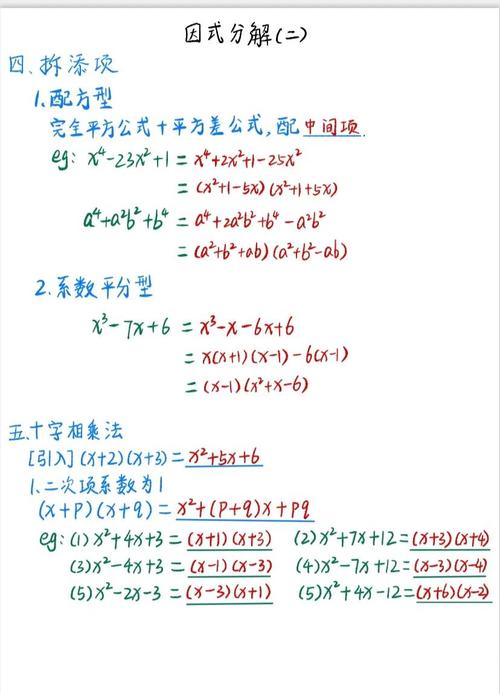 因式分解(二)
四、拆添项
1.配方型
完全平方公式+平方差公式,配中间项.
eg: x⁴-23x²+1 = x⁴+2x²+1-25x²
= (x²+1-5x)(x²+1+5x)
a⁴+a²b²+b⁴ = a⁴+2a²b²+b⁴-a²b²
= (a²+b²+ab)(a²+b²-ab)
2.系数平分型
x³-7x+6 = x³-x-6x+6
= x(x+1)(x-1)-6(x-1)
= (x-1)(x²+x-6)
五.十字相乘法
[引入](x+2)(x+3)=x²+5x+6
1.二次项系数为1
(x+p)(x+q) = x²+(p+q)x+pq
eg:(1)x²+4x+3 = (x+1)(x+3) (2)x²+7x+12=(x+3)(x+4)
(3)x²-4x+3 = (x-1)(x-3) (4)x²-7x+12=(x-3)(x-4)
(5)x²-2x-3 = (x-3)(x+1) (5)x²+4x-12=(x+6)(x-2)